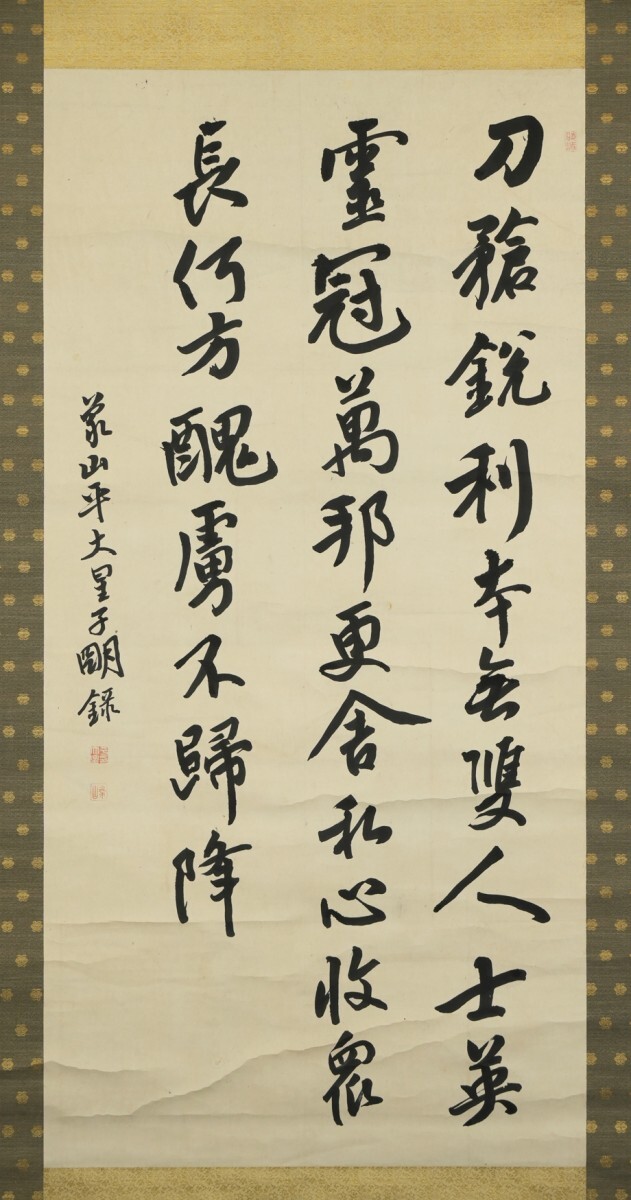 刀槍銳利本無雙人士英
靈冠萬邦更舍私心收眾
長何方醜虜不歸降
象山平大星子明錄